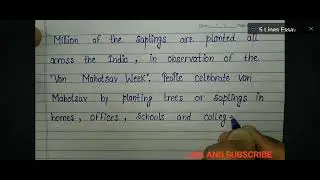 5 Lines Essay
Million of the saplings are planted all
across the India, in observation of the
"Van Mahotsav Week". People celebrate Van
Mahotsav by planting trees or saplings in
homes, offices, schools and colleg
AND SUBSCRIBE